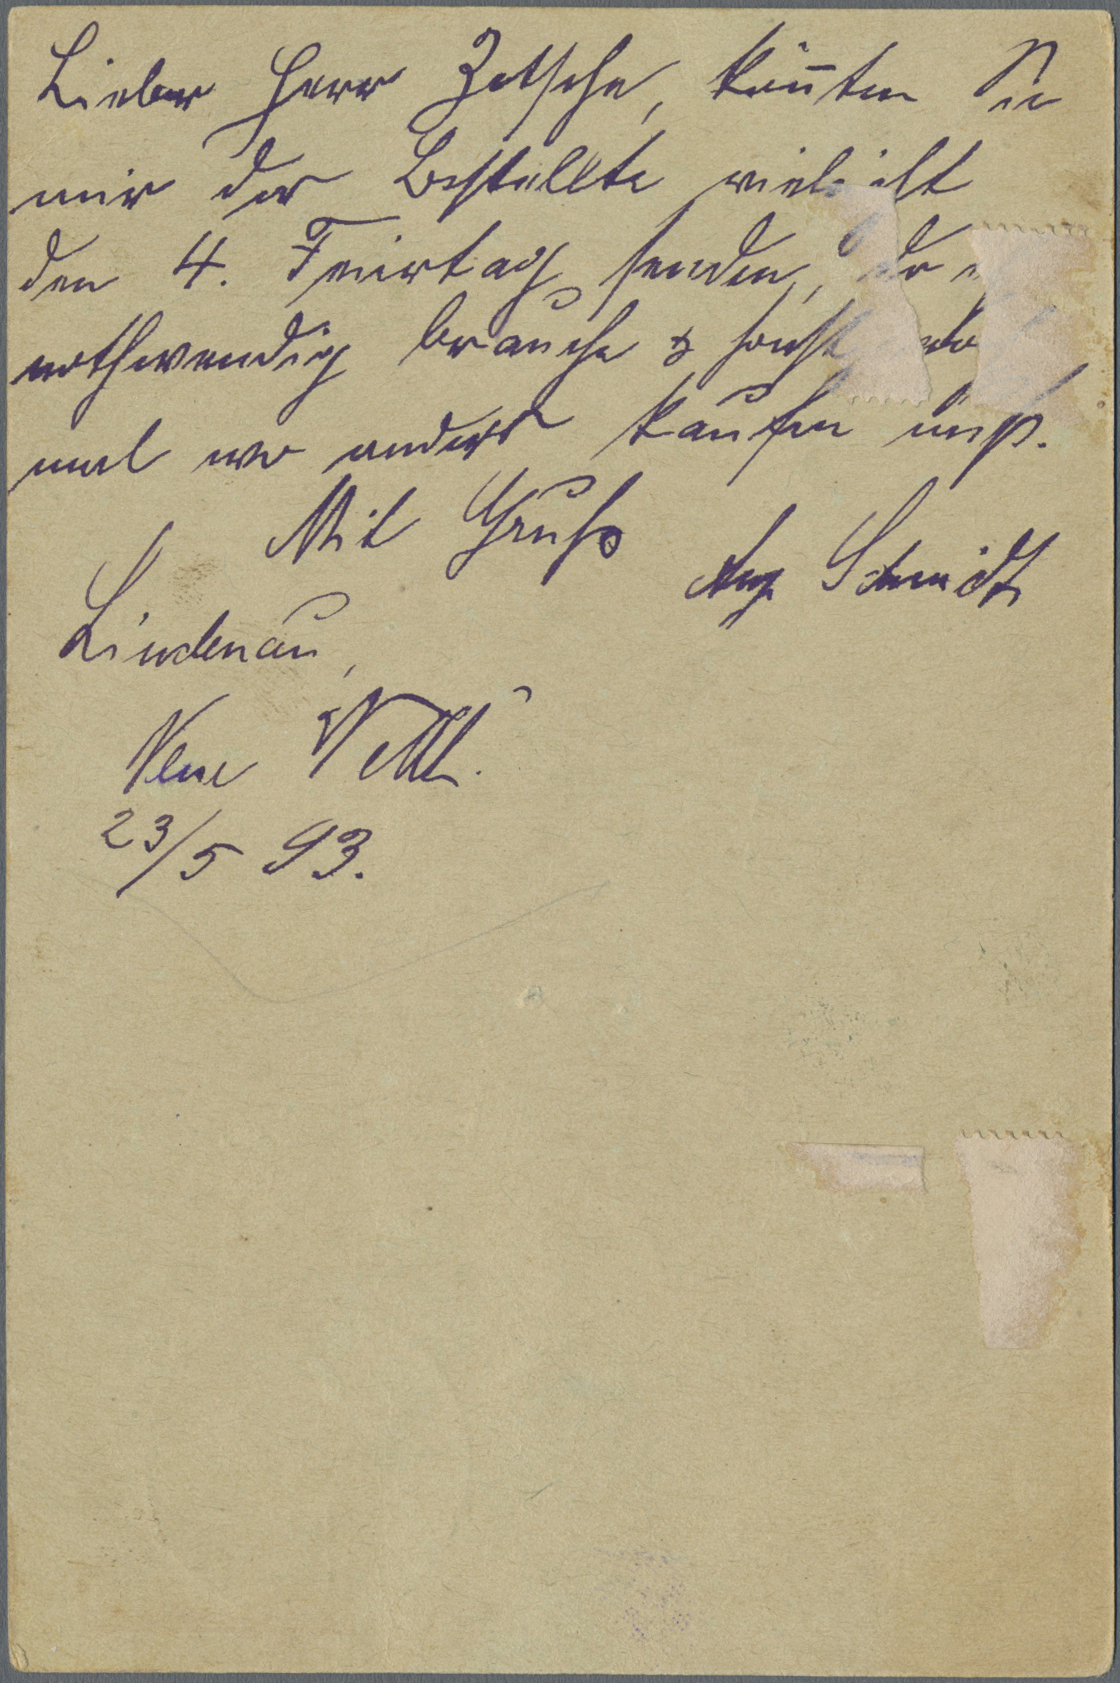 Lieber Herr Zetsche, könnten Sie
mir das Bestellte vielleicht
den 4. Feiertag senden, da
nothwendig brauche & sonst
mal wo anders kaufen muß.
Mit Gruß
Aug. Schmidt
Lindenau,
Neue
23/5 93.